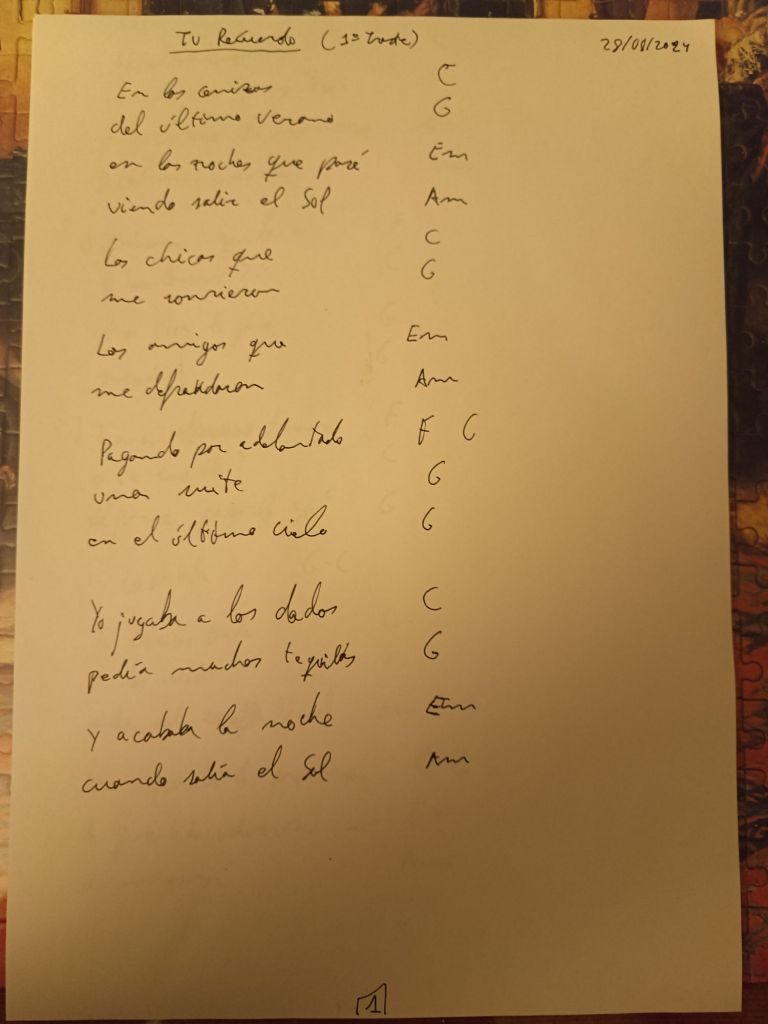 Tu Recuerdo (1º Traste) 28/08/2024
En las cenizas C
del último verano G
en las noches que pasé Em
viendo salir el Sol Am
Las chicas que C
me sonrieron G
Los amigos que Em
me defraudaron Am
Pagando por adelantado F C
una suite G
en el último cielo G
Yo jugaba a los dados C
pedía muchos tequilas G
Y acababa la noche Em
cuando salía el Sol Am
1